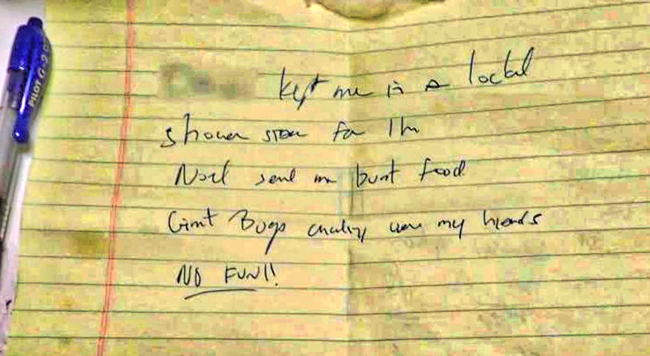 PILOT G-2
kept me in a locked
shower stall for 1hr
Noel sent me burnt food
Giant Bugs crawling over my hands
NO FUN!!